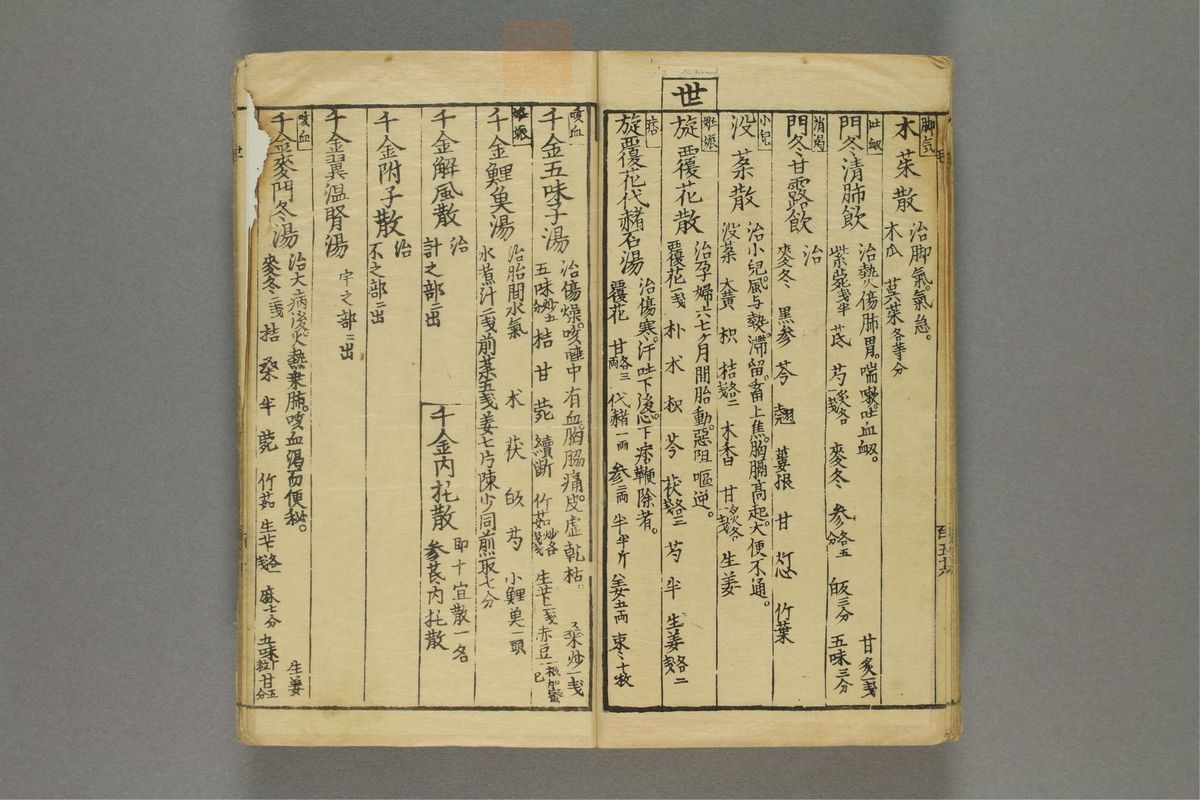 脚気
木茱散
治脚氣。氣急。
木瓜 茱各等分
吐衂
門冬清肺飲
治熱傷肺胃。喘嗽。吐血衂。
紫菀戔半 芪 芍 麥冬 參各五分 五味三分
甘炙一戔
消渇
門冬甘露飲
治
麥冬 黒参 芩 翹 蔞根 甘 竹葉
小兒
没薬散
治小兒。風与熱滞留。畜上焦。胸膈高起。大便不通。
没薬 大黄 枳 桔各二戔 木香 甘 生姜
世
妊娠
旋覆花散
治孕婦六七ケ月間胎動。惡阻嘔逆。
覆花一戔 朴 朮 枳 芩 茯 芍 半 生姜各二戔
痞
旋覆花代赭石湯
治傷寒。汗吐下後。心下痞鞕除者。
覆花 甘各三兩 代赭一兩 参二兩 半半斤 姜五兩 棗十枚
咳血
千金五味子湯
治傷燥。咳唾中有血。胸脇痛。皮虚乾枯。
五味 桔 甘 菀 續断 竹茹 生 赤豆
桑炒一戔
妊娠
千金鯉魚湯
治胎間水氣 朮 茯 芍 小鯉魚一頭
水煮汁二戔前薬五戔姜七片陳少同煎取七分
千金解風散
治
計之部ニ出
千金内托散
即十宣散一名
参芪内托散
千金附子散
治
不之部ニ出
千金翼温腎湯
宇之部ニ出
咳血
千金麥門冬湯
治大病後火熱乗肺。咳血渇而便秘。
麥冬二戔 桔 桑 半 菀 竹茹 生 麻七分 五味 甘五分
生姜